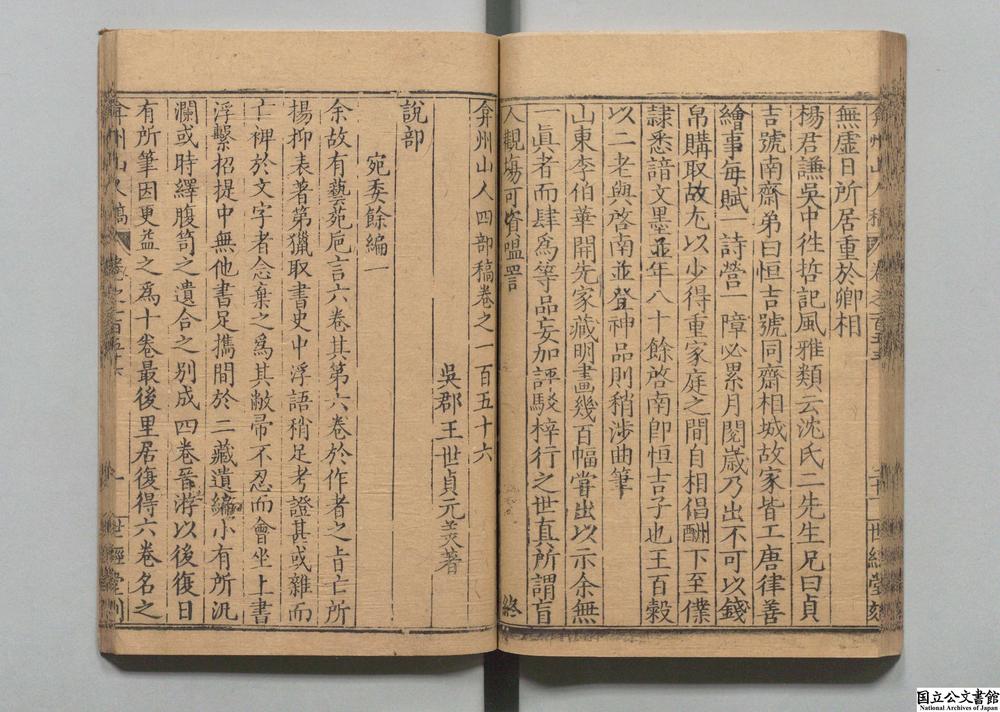 無虛日所居重於卿相
楊君謙吳中徃哲記風雅類云沈氏二先生兄曰貞
吉號南齋弟曰恒吉號同齋相城故家皆工唐律善
繪事每賦一詩營一障必累月閱歲乃出不可以錢
帛購取故尤以少得重家庭之間自相倡酬下至僕
隷悉諳文墨並年八十餘啓南卽恒吉子也王百穀
以二老與啓南並登神品則稍涉曲筆
山東李伯華開先家藏明畫幾百幅嘗出以示余無
一眞者而肆爲等品妄加評駁梓行之世真所謂盲
人觀塲可資嗢噱
終
弇州山人四部稿卷之一百五十六
吳郡王世貞元美著
說部
宛委餘編一
余故有藝苑巵言六卷其第六卷於作者之旨亡所
楊抑表著第獵取書史中浮語稍足考證甚或雜而
亡裨於文字者念棄之爲其敝帚不忍而會坐上書
浮繫招提中無他書足攜間於二藏遺編小有所汎
瀾或時繹腹笥之遺合之別成四卷晉游以後復日
有所筆因更益之爲十卷最後里居復得六卷名之
弇州山人稿
卷之一百五十六
一
世經堂刻
国立公文書館
National Archives of Japan